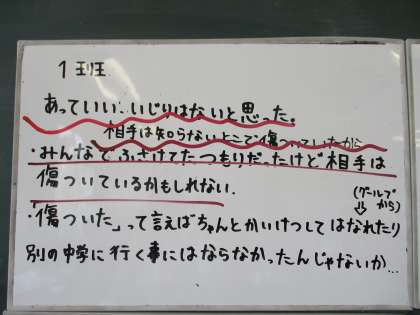 1班
あっていい、いじりはないと思った。
相手は知らないとこで傷ついていたから
・みんなでふざけてたつもりだったけど相手は
傷ついているかもしれない.
(グループから)
・傷ついた」って言えばちゃんとかいけつしてはなれたり
別の中学に行く事にはならなかったんじゃないか…